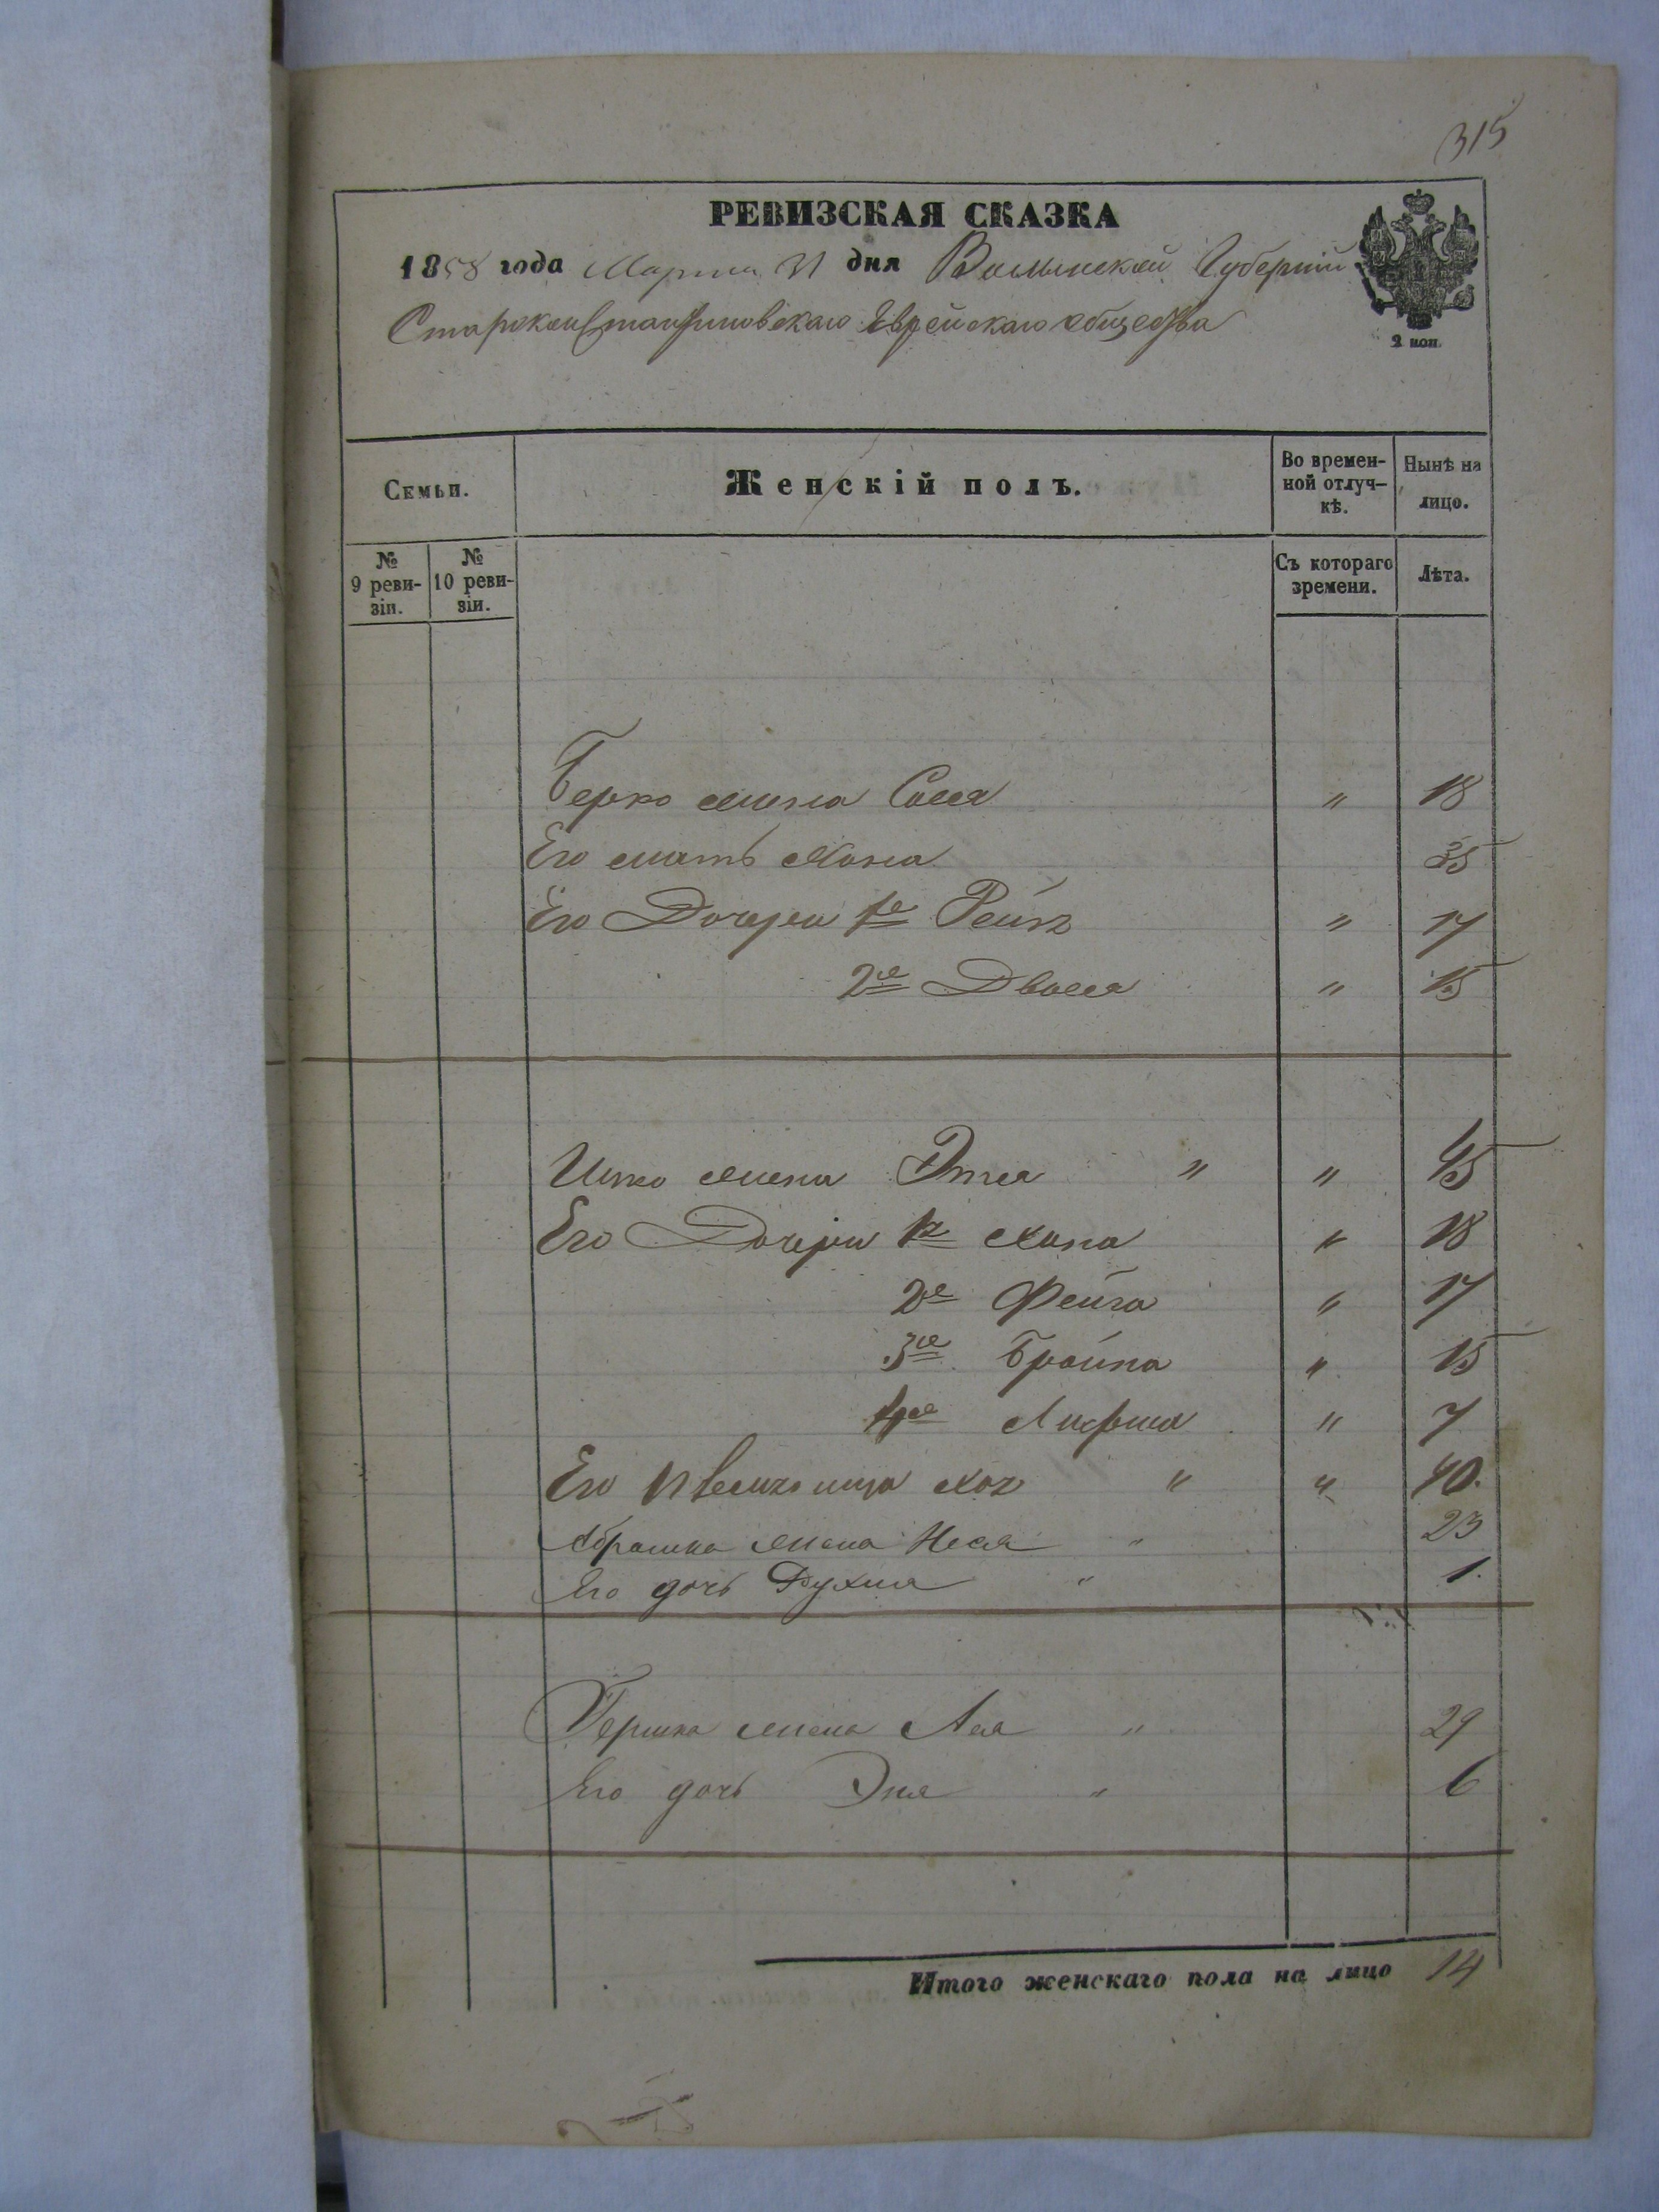 315
РЕВИЗСКАЯ СКАЗКА
1858 года Марта 31 дня Волынской Губернии
Староконстантиновскаго Еврейскаго общества
2 коп.
Семьи.
Женскій полъ.
Во времен-
ной отлуч-
кѣ.
Нынѣ на
лицо.
№
9 реви-
зіи.
№
10 реви-
зіи.
Съ котораго
времени.
Лѣта.
Берко жена Сося " 18
Его мать Хана 55
Его Дочери 1я " 17
2я Двося " 15
Ицко жена Этя " " 45
Его Дочери 1я Хана " 18
2я Фейга " 17
3я Бройна " 15
4я " 7
Его " " 40.
Абрамка жена Неся " 23
Его дочь Рухля " 1.
Гершка жена Лея " 29
Его дочь Эня " 6
Итого женскаго пола на лицо 14